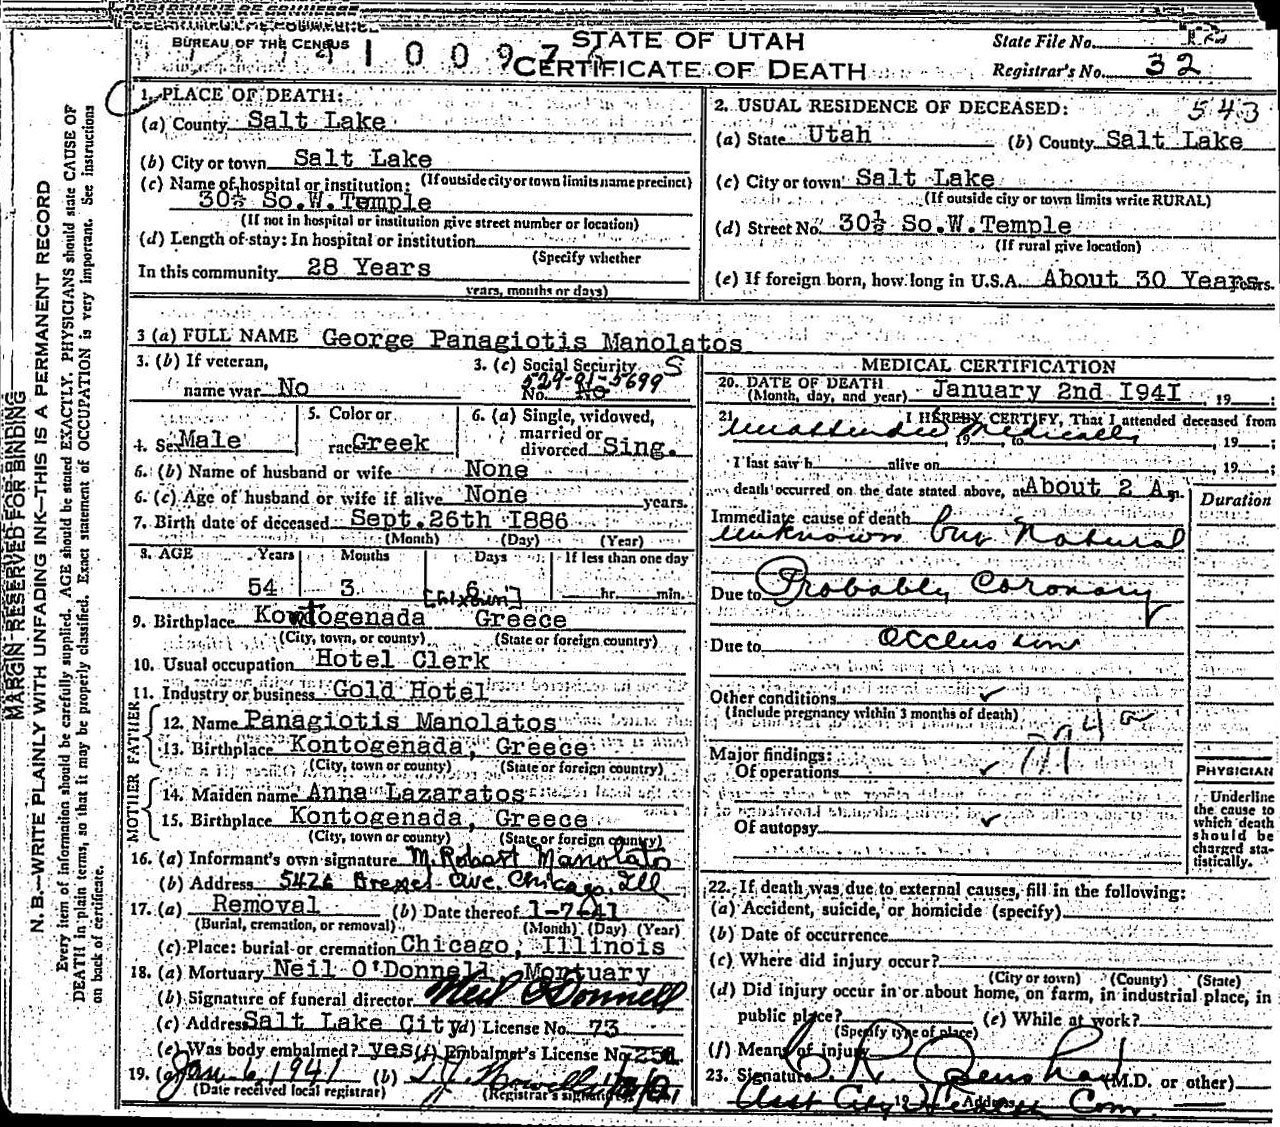 BUREAU OF THE CENSUS
STATE OF UTAH
CERTIFICATE OF DEATH
State File No.
Registrar's No. 32
543
1. PLACE OF DEATH:
(a) County Salt Lake
(b) City or town Salt Lake
(If outside city or town limits name precinct)
(c) Name of hospital or institution:
30½ So.W.Temple
(If not in hospital or institution give street number or location)
(d) Length of stay: In hospital or institution
(Specify whether
In this community 28 Years
years, months or days)
2. USUAL RESIDENCE OF DECEASED:
(a) State Utah (b) County Salt Lake
(c) City or town Salt Lake
(If outside city or town limits write RURAL)
(d) Street No. 30½ So.W.Temple
(If rural give location)
(e) If foreign born, how long in U.S.A. About 30 Years years.
3 (a) FULL NAME George Panagiotis Manolatos
3. (b) If veteran,
name war No
3. (c) Social Security S
No. 529-01-5699 No
4. Sex Male
5. Color or
race Greek
6. (a) Single, widowed,
married or
divorced Sing.
6. (b) Name of husband or wife None
6. (c) Age of husband or wife if alive None years.
7. Birth date of deceased Sept.26th 1886
(Month) (Day) (Year)
8. AGE Years Months Days If less than one day
54 3 6 hr. min.
9. Birthplace Kontogenada Greece
(City, town, or county) (State or foreign country)
10. Usual occupation Hotel Clerk
11. Industry or business Gold Hotel
FATHER
12. Name Panagiotis Manolatos
13. Birthplace Kontogenada, Greece
(City, town or county) (State or foreign country)
MOTHER
14. Maiden name Anna Lazaratos
15. Birthplace Kontogenada, Greece
(City, town or county) (State or foreign country)
16. (a) Informant's own signature M. Robert Manolato
(b) Address 5426 Drexel Ave. Chicago, Ill
17. (a) Removal (b) Date thereof 1-7-41
(Burial, cremation, or removal) (Month) (Day) (Year)
(c) Place: burial or cremation Chicago, Illinois
18. (a) Mortuary Neil O'Donnell Mortuary
(b) Signature of funeral director Neil O'Donnell
(c) Address Salt Lake City (d) License No. 73
(e) Was body embalmed? yes (f) Embalmer's License No. 251
19. (a) Jan 6, 1941 (b)
(Date received local registrar) (Registrar's signature)
MEDICAL CERTIFICATION
20. DATE OF DEATH
(Month, day, and year) January 2nd 1941, 19 :
21. I HEREBY CERTIFY, That I attended deceased from
Unattended Medically 19 to , 19 :
I last saw h alive on , 19 :
death occurred on the date stated above, at About 2 A. m.
Duration
Immediate cause of death
Unknown but Natural
Due to Probably Coronary
Due to occlusion
Other conditions ✓
(Include pregnancy within 3 months of death)
94a
Major findings:
Of operations ✓
Of autopsy ✓
PHYSICIAN
Underline
the cause to
which death
should be
charged sta-
tistically.
22. If death was due to external causes, fill in the following:
(a) Accident, suicide, or homicide (specify)
(b) Date of occurrence
(c) Where did injury occur?
(City or town) (County) (State)
(d) Did injury occur in or about home, on farm, in industrial place, in
public place? (e) While at work?
(Specify type of place)
(f) Means of injury
23. Signature (M.D. or other)
Asst City Health Com. 19 Address
MARGIN RESERVED FOR BINDING
N. B.—WRITE PLAINLY WITH UNFADING INK—THIS IS A PERMANENT RECORD
Every item of information should be carefully supplied. AGE should be stated EXACTLY. PHYSICIANS should state CAUSE OF
DEATH in plain terms, so that it may be properly classified. Exact statement of OCCUPATION is very important. See instructions
on back of certificate.